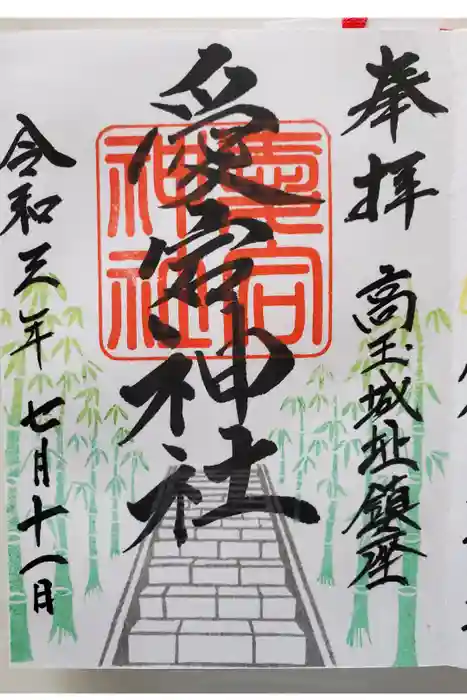 奉拝
高玉城址鎮座
愛宕神社
愛宕
神社
令和三年七月十八日